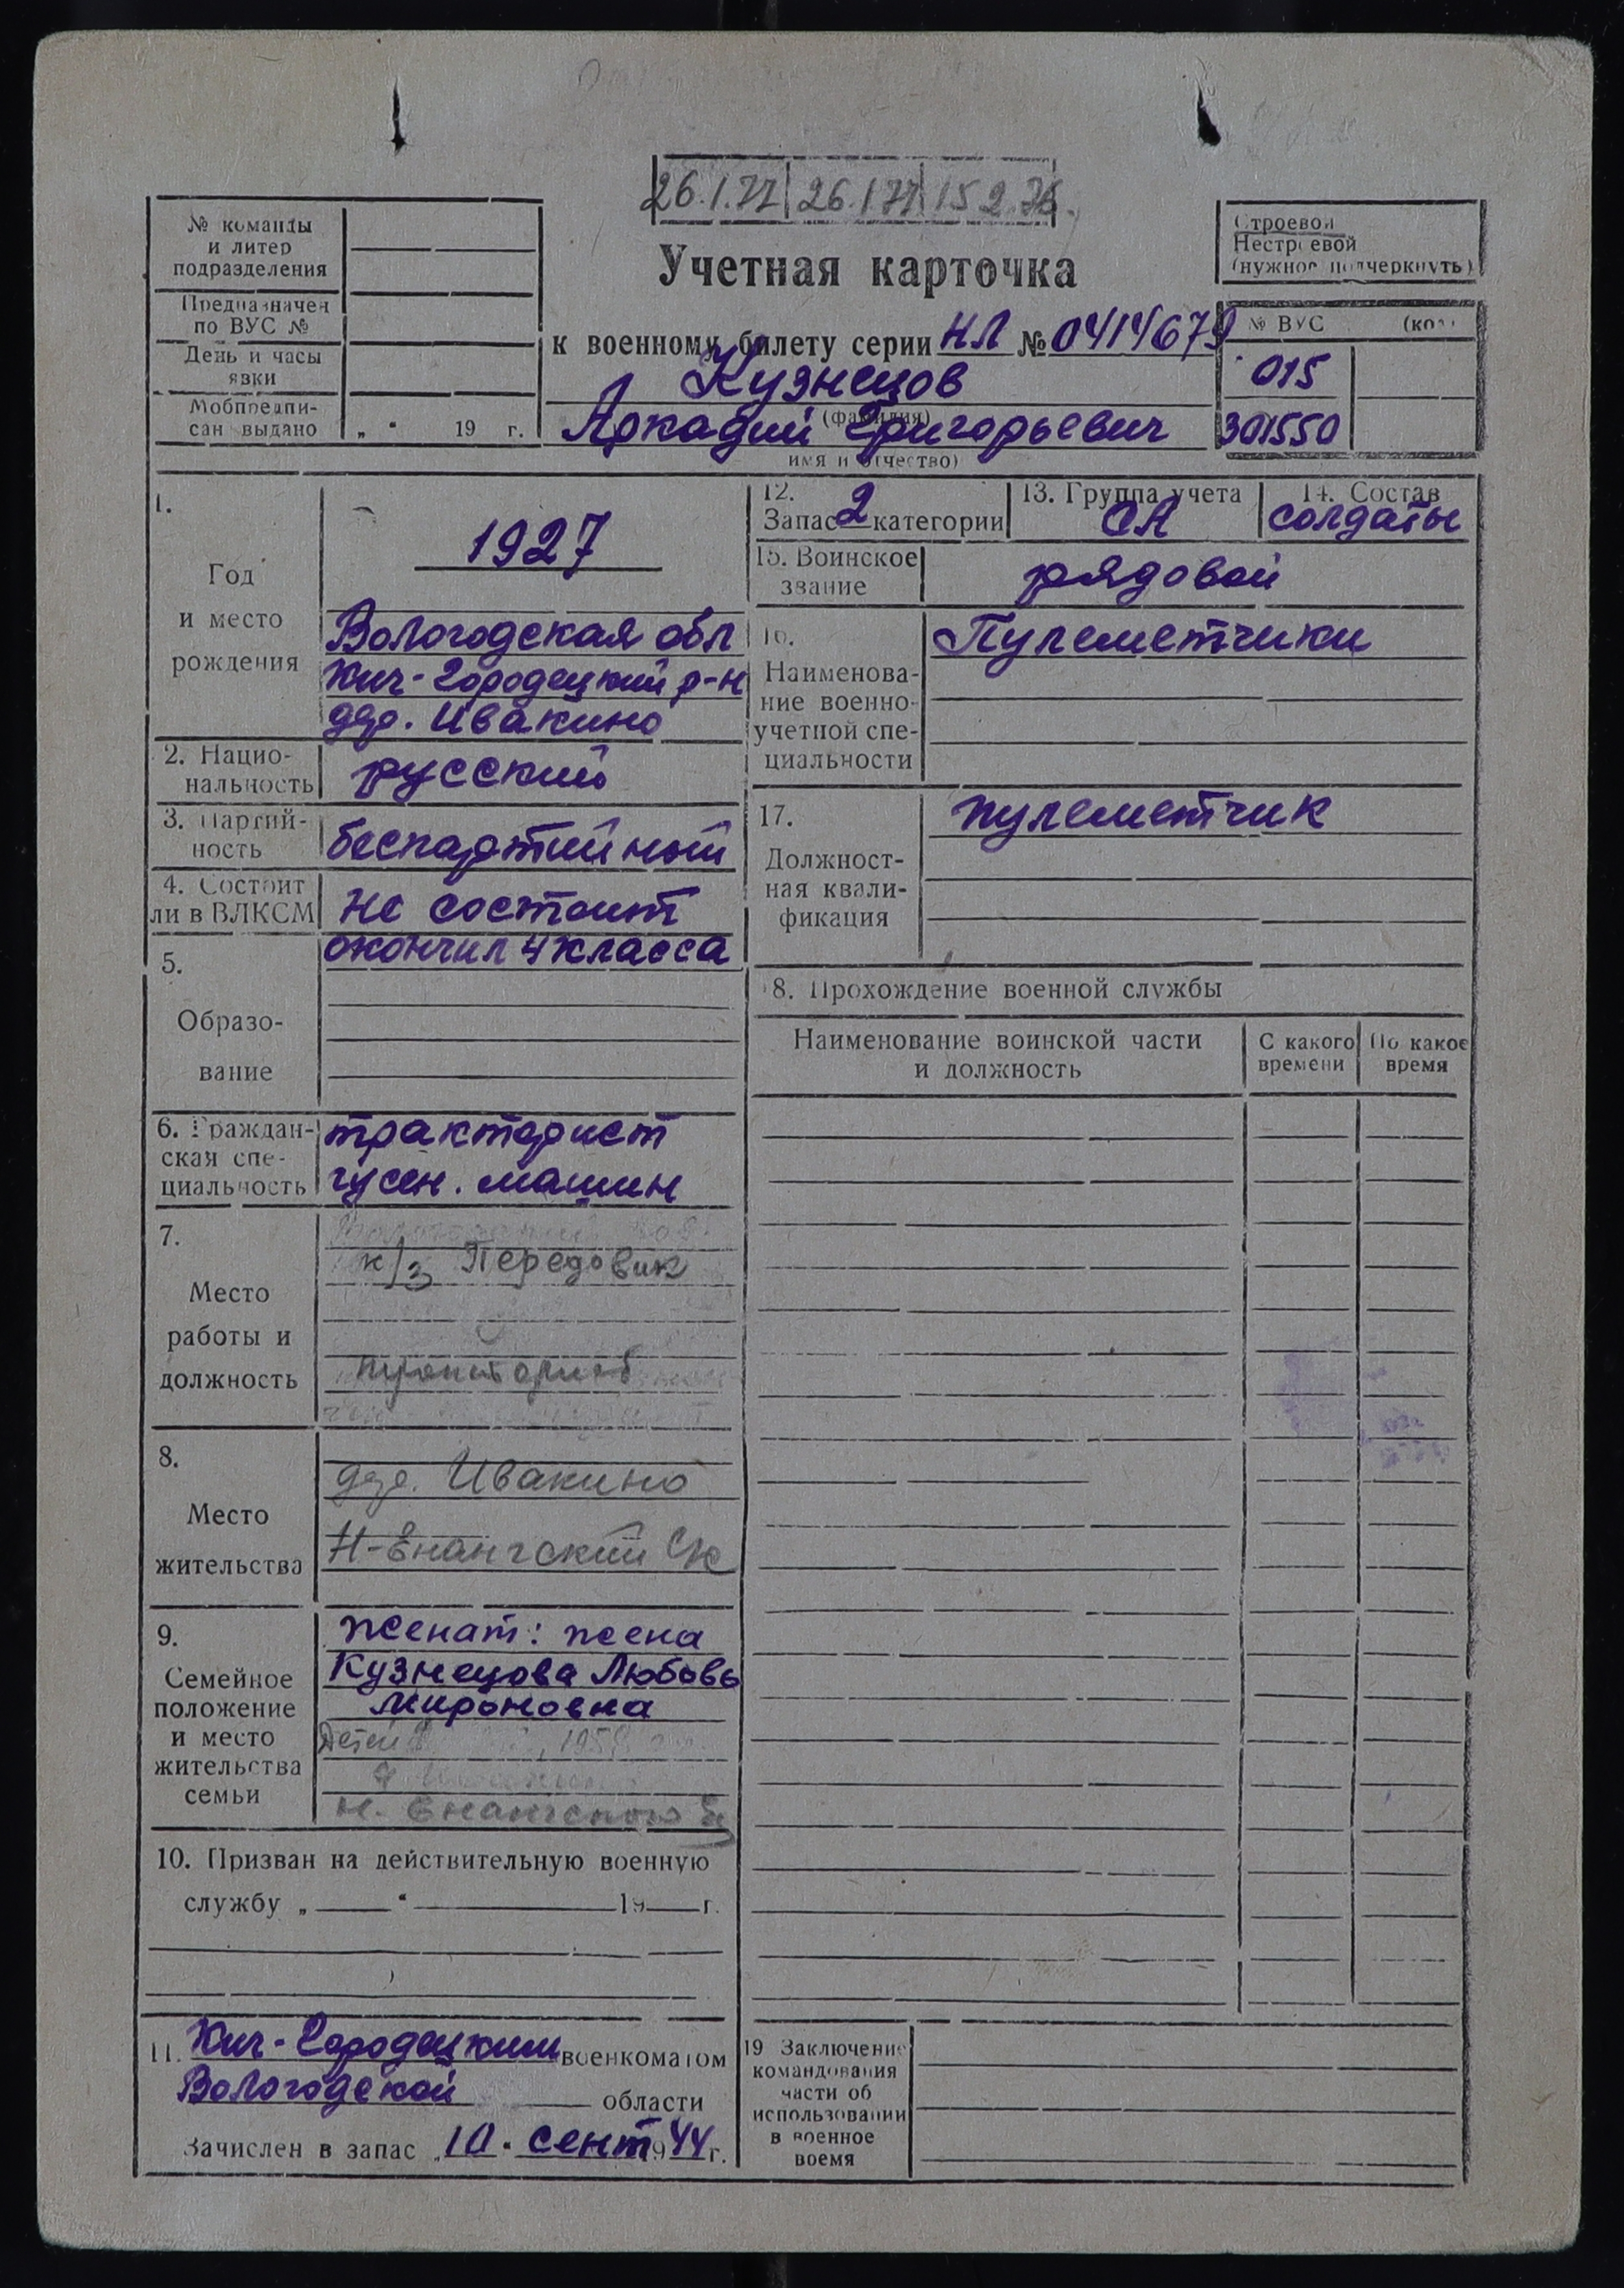 26.1.77 26.1.77 15 2.76.
№ команды
и литер
подразделения
Предназначен
по ВУС №
День и часы
явки
Мобпредпи-
сан выдано „ “ 19 г.
Учетная карточка
к военному билету серии НЛ № 0414679
Кузнецов
(фамилия)
Аркадий Григорьевич
имя и отчество)
Строевой
Нестроевой
(нужное подчеркнуть)
№ ВУС (код)
015
301550
1.
Год
и место
рождения
1927
Вологодская обл
Кич-Городецкий р-н
дер. Ивакино
2. Нацио-
нальность
русский
3. Партий-
ность
беспартийный
4. Состоит
ли в ВЛКСМ
не состоит
5.
Образо-
вание
окончил 4 класса
6. Граждан-
ская спе-
циальность
тракторист
гусен. машин
7.
Место
работы и
должность
к/з Передовик
тракторист
8.
Место
жительства
дер. Ивакино
Н-Енангский с/с
9.
Семейное
положение
и место
жительства
семьи
женат: жена
Кузнецова Любовь
Мироновна
Детей
Н-Енангского
10. Призван на действительную военную
службу „ “ 19 г.
11. Кич-Городецким военкоматом
Вологодской области
Зачислен в запас „10“ сент 1944 г.
12.
Запас 2 категории
13. Группа учета
СА
14. Состав
солдаты
15. Воинское
звание
рядовой
16.
Наименова-
ние военно-
учетной спе-
циальности
Пулеметчики
17.
Должност-
ная квали-
фикация
пулеметчик
18. Прохождение военной службы
Наименование воинской части
и должность
С какого
времени
По какое
время
19 Заключение
командования
части об
использовании
в военное
время